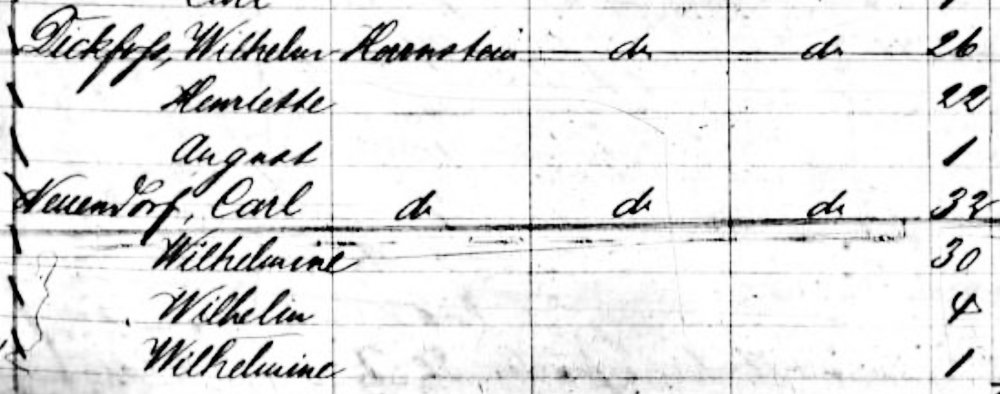 Carl 1
Wilhelm Hornstein do do 26
Henriette 22
August 1
Neuendorf, Carl do do do 32
Wilhelmine 30
Wilhelm 4
Wilhelmine 1